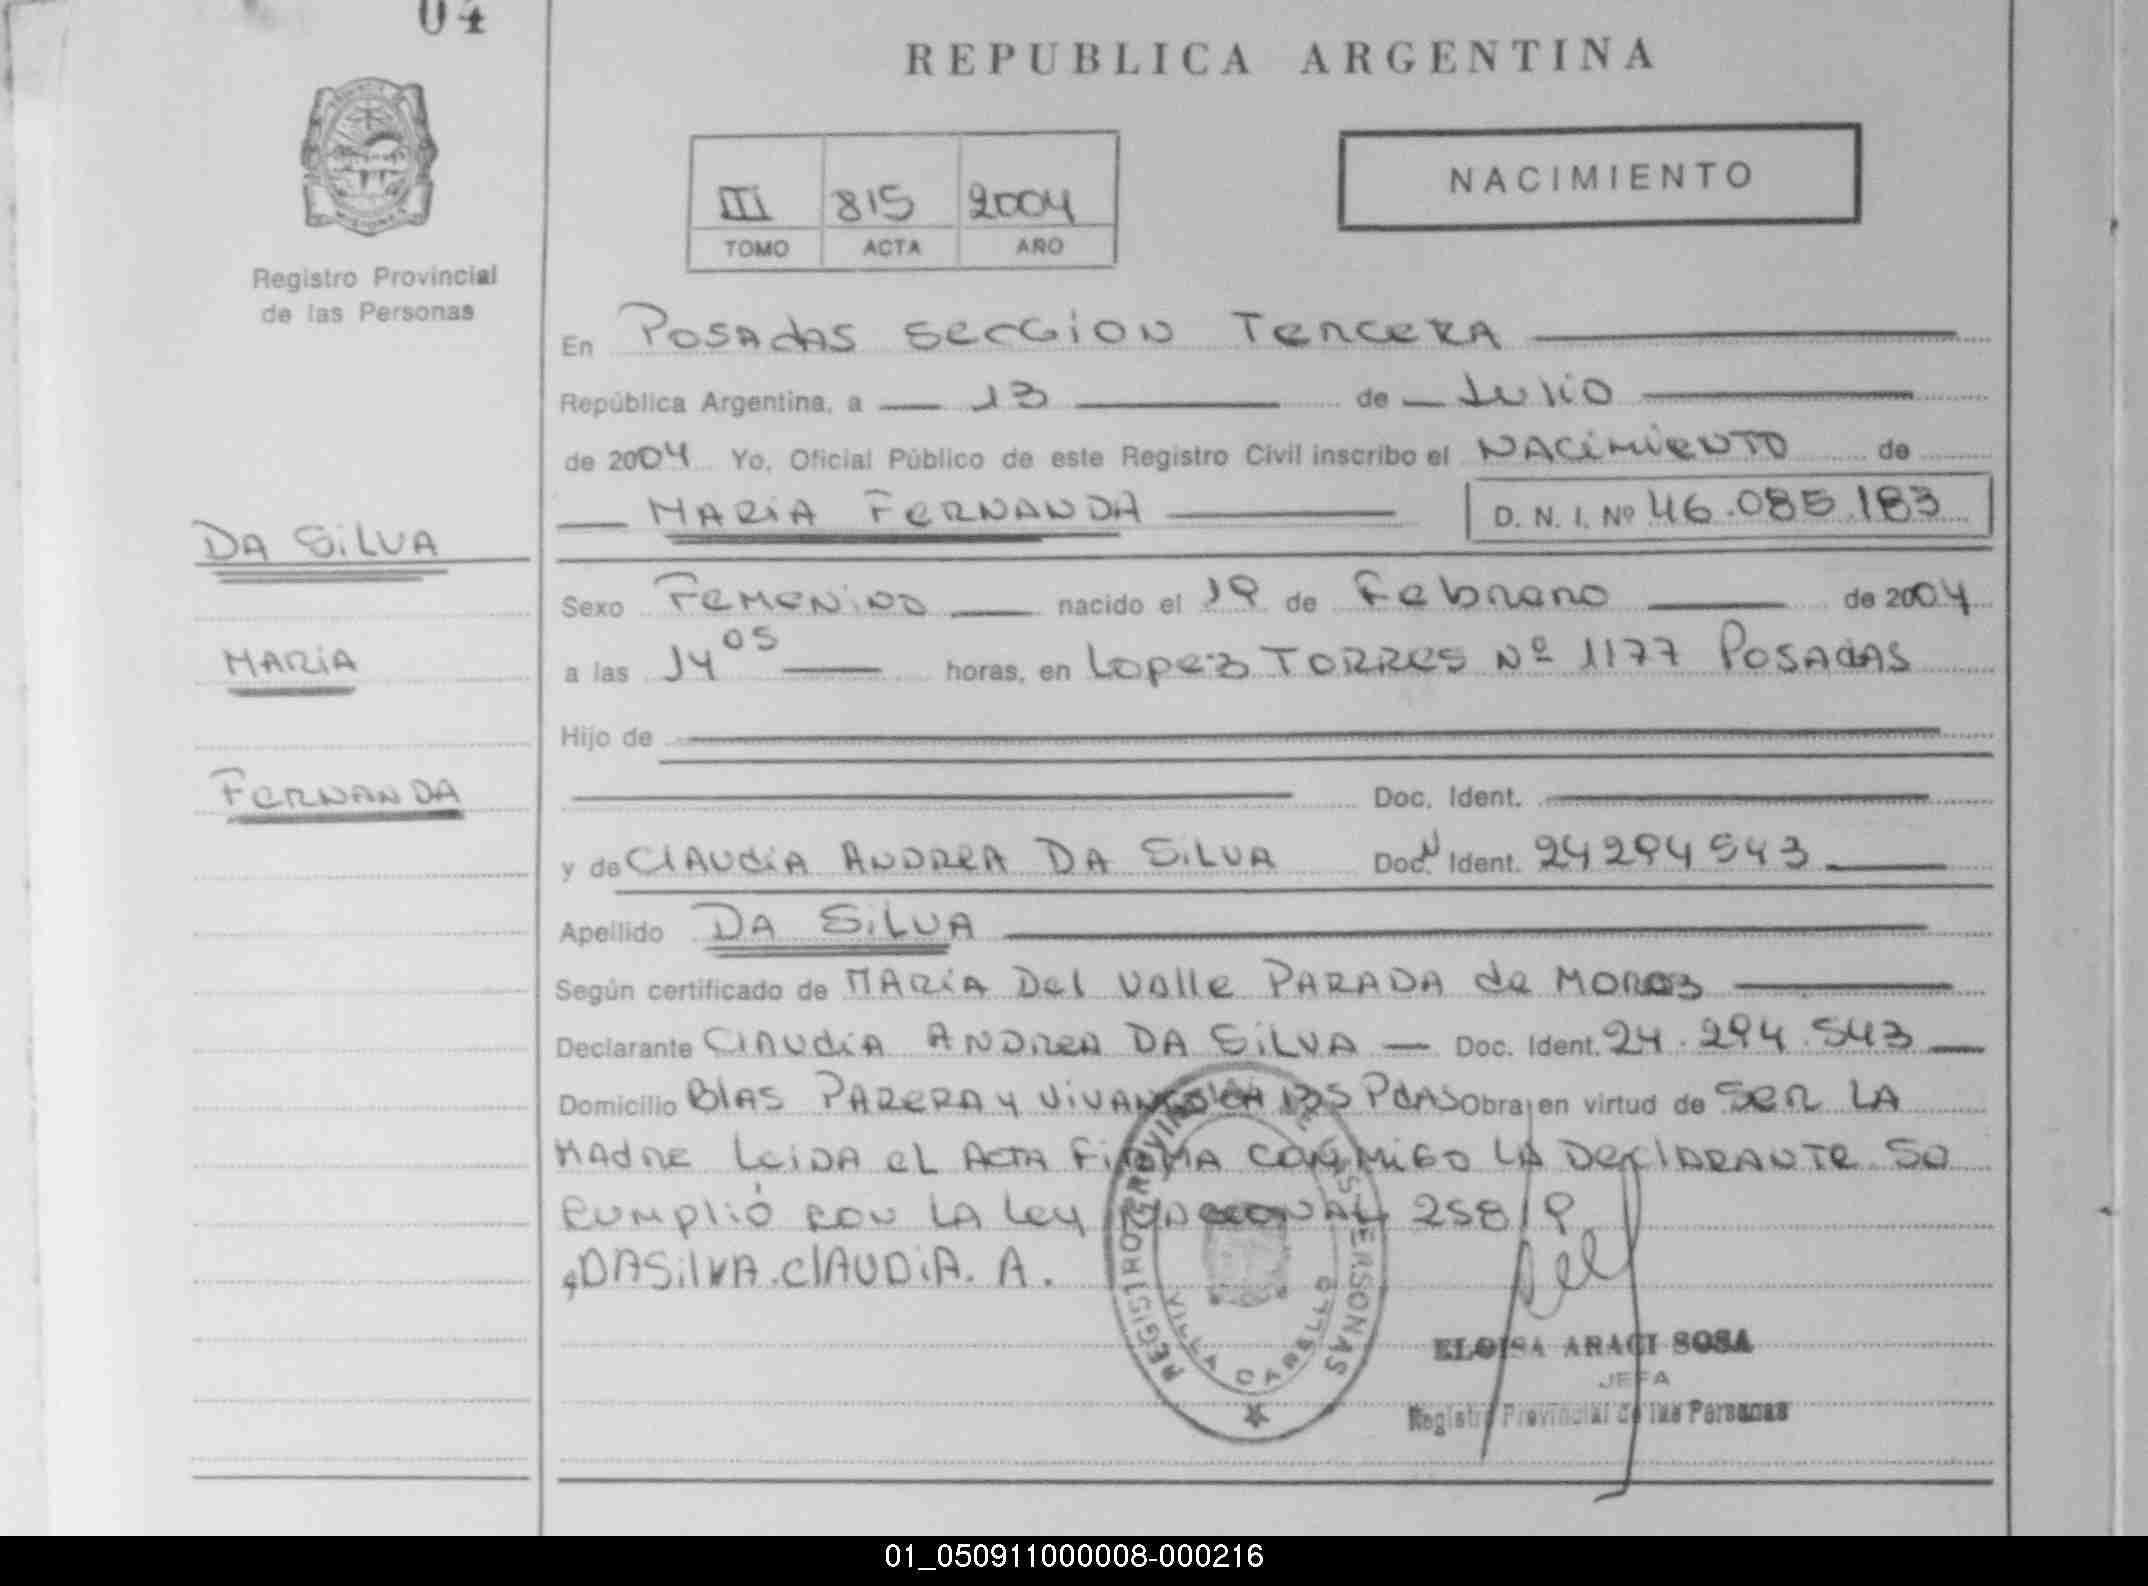 04
REPUBLICA ARGENTINA
NACIMIENTO
III 815 2004
TOMO ACTA AÑO
Registro Provincial
de las Personas
En POSAdAS SECCION TERCERA
República Argentina, a 13 de Julio
de 2004 Yo, Oficial Público de este Registro Civil inscribo el NACIMIENTO de
MARIA FERNANDA D. N. I. Nº 46.085.183
DA SILVA
Sexo FEMENINO nacido el 19 de Febrero de 2004
a las 14 05 horas, en Lopez TORRES Nº 1177 POSAdAS
MARIA
Hijo de
FERNANDA
Doc. Ident.
y de CLAUdIA ANDREA DA SILVA Doc. N Ident. 24294543
Apellido DA SILVA
Según certificado de MARIA Del Valle PARADA de MOROZ
Declarante CLAUdIA ANDREA DA SILVA Doc. Ident. 24.294.543
Domicilio BLAS PARERA y VIVANCO CA 125 PdAS Obra en virtud de SER LA
MAdRE LEIDA EL ACTA FIRMA CONMIGO LA DECLARANTE SO
CUMPLIÓ CON LA Ley NACIONAL 25819
DASILVA.CLAUDIA.A.
REGISTRO PROVINCIAL DE LAS PERSONAS
VILLA CABELLO
ELOISA ARACI SOSA
JEFA
Registro Provincial de las Personas
01_050911000008-000216